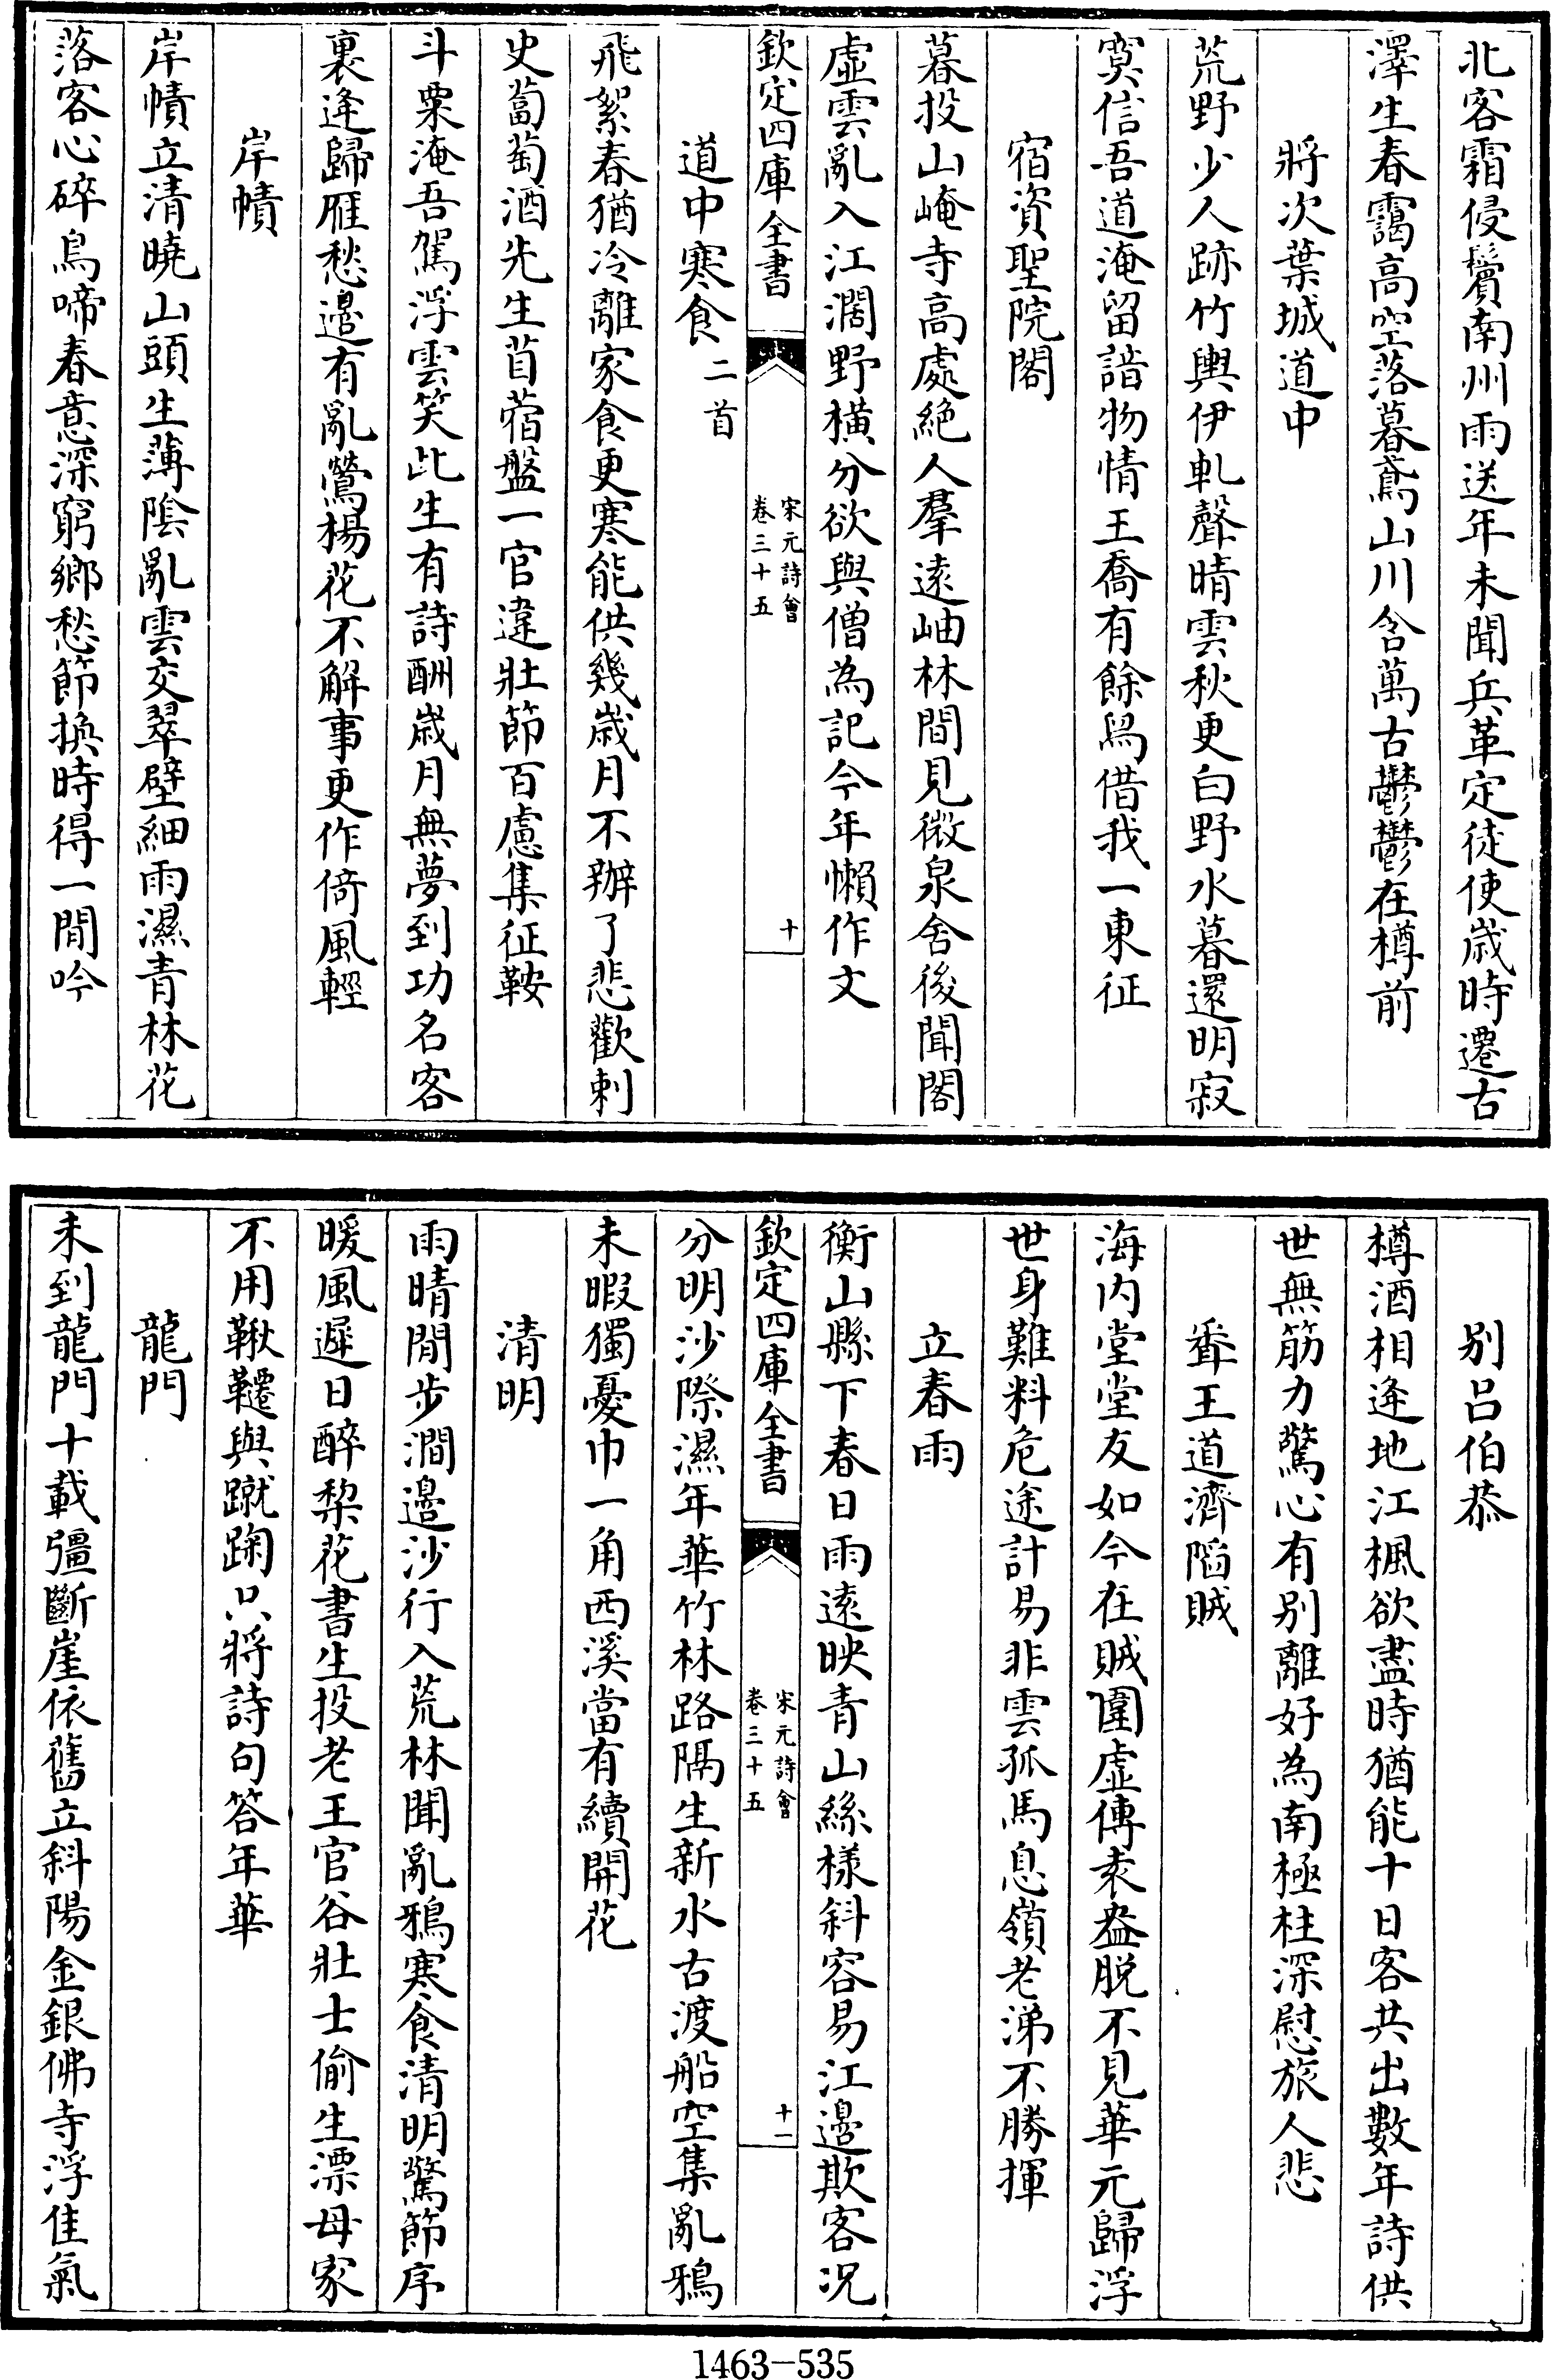 北客霜侵鬢南州雨送年未聞兵革定徒使歲時遷古
澤生春靄高空落暮鳶山川含萬古鬱鬱在樽前
將次葉城道中
荒野少人跡竹輿伊軋聲晴雲秋更白野水暮還明寂
寞信吾道淹留諳物情王喬有餘舄借我一東征
宿資聖院閣
暮投山崦寺高處絕人羣遠岫林間見微泉舍後聞閣
虛雲亂入江濶野橫分欲與僧為記今年懶作文
欽定四庫全書
宋元詩會
卷三十五
十
道中寒食二首
飛絮春猶冷離家食更寒能供幾歲月不辦了悲歡刺
史蔔萄酒先生苜蓿盤一官違壯節百慮集征鞍
斗粟淹吾駕浮雲笑此生有詩酬歲月無夢到功名客
裏逢歸雁愁邊有亂鶯楊花不解事更作倚風輕
岸幘
岸幘立清曉山頭生薄陰亂雲交翠壁細雨濕青林花
落客心碎鳥啼春意深窮鄉愁節換時得一閒吟
别吕伯恭
樽酒相逢地江楓欲盡時猶能十日客共出數年詩供
世無筋力驚心有别離好為南極柱深慰旅人悲
聞王道濟陷賊
海内堂堂友如今在賊圍虛傳袁盎脱不見華元歸浮
世身難料危途計易非雲孤馬息嶺老涕不勝揮
立春雨
衡山縣下春日雨遠映青山絲様斜容易江邊欺客况
分明沙際濕年華竹林路隔生新水古渡船空集亂鴉
未暇獨憂巾一角西溪當有續開花
欽定四庫全書
宋元詩會
卷三十五
十一
清明
雨晴閒步澗邊沙行入荒林聞亂鴉寒食清明驚節序
暖風遲日醉棃花書生投老王官谷壯士偷生漂母家
不用鞦韆與蹴踘只將詩句答年華
龍門
未到龍門十載彊斷崖依舊立斜陽金銀佛寺浮佳氣
1463-535